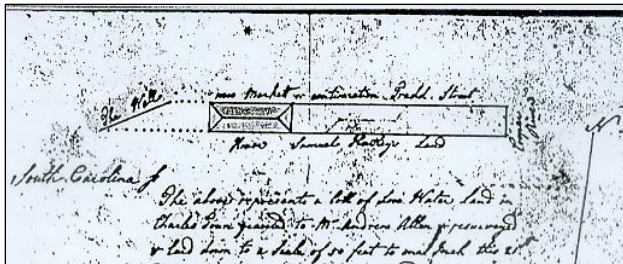 The Wall
new Market or continuation Tradd Street
House Samuel Land
Low
N
South Carolina
The above represents a lott of Low Water Land in
Charles Town granted to Mr Andrew Allen & resurveyed
& laid down to a Scale of 50 feet to one Inch this 21st